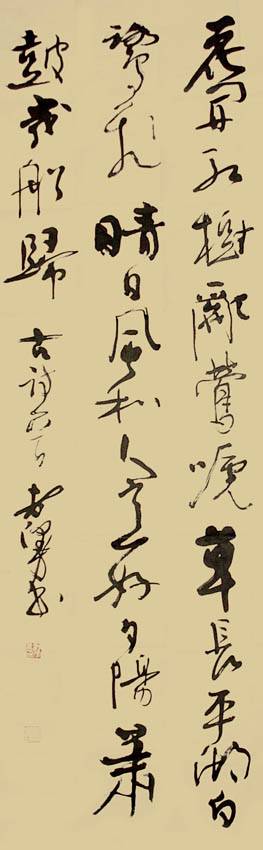 花開紅樹亂鶯嗁草長平湖白
鷺飛晴日風和人意好夕陽簫
鼓幾船歸 古詩